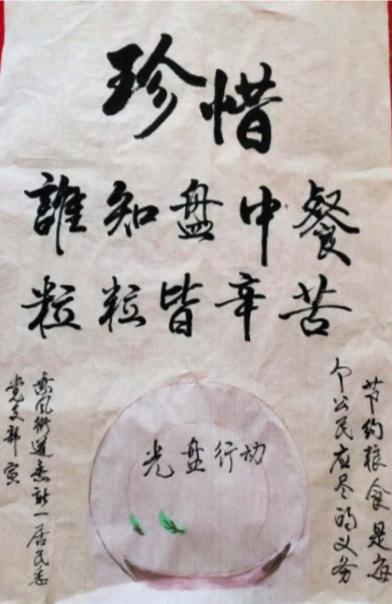 珍惜
誰知盘中餐
粒粒皆辛苦
节约粮食是每
个公民应尽的义务
光盘行动
街道
一居民委
党支部 寅